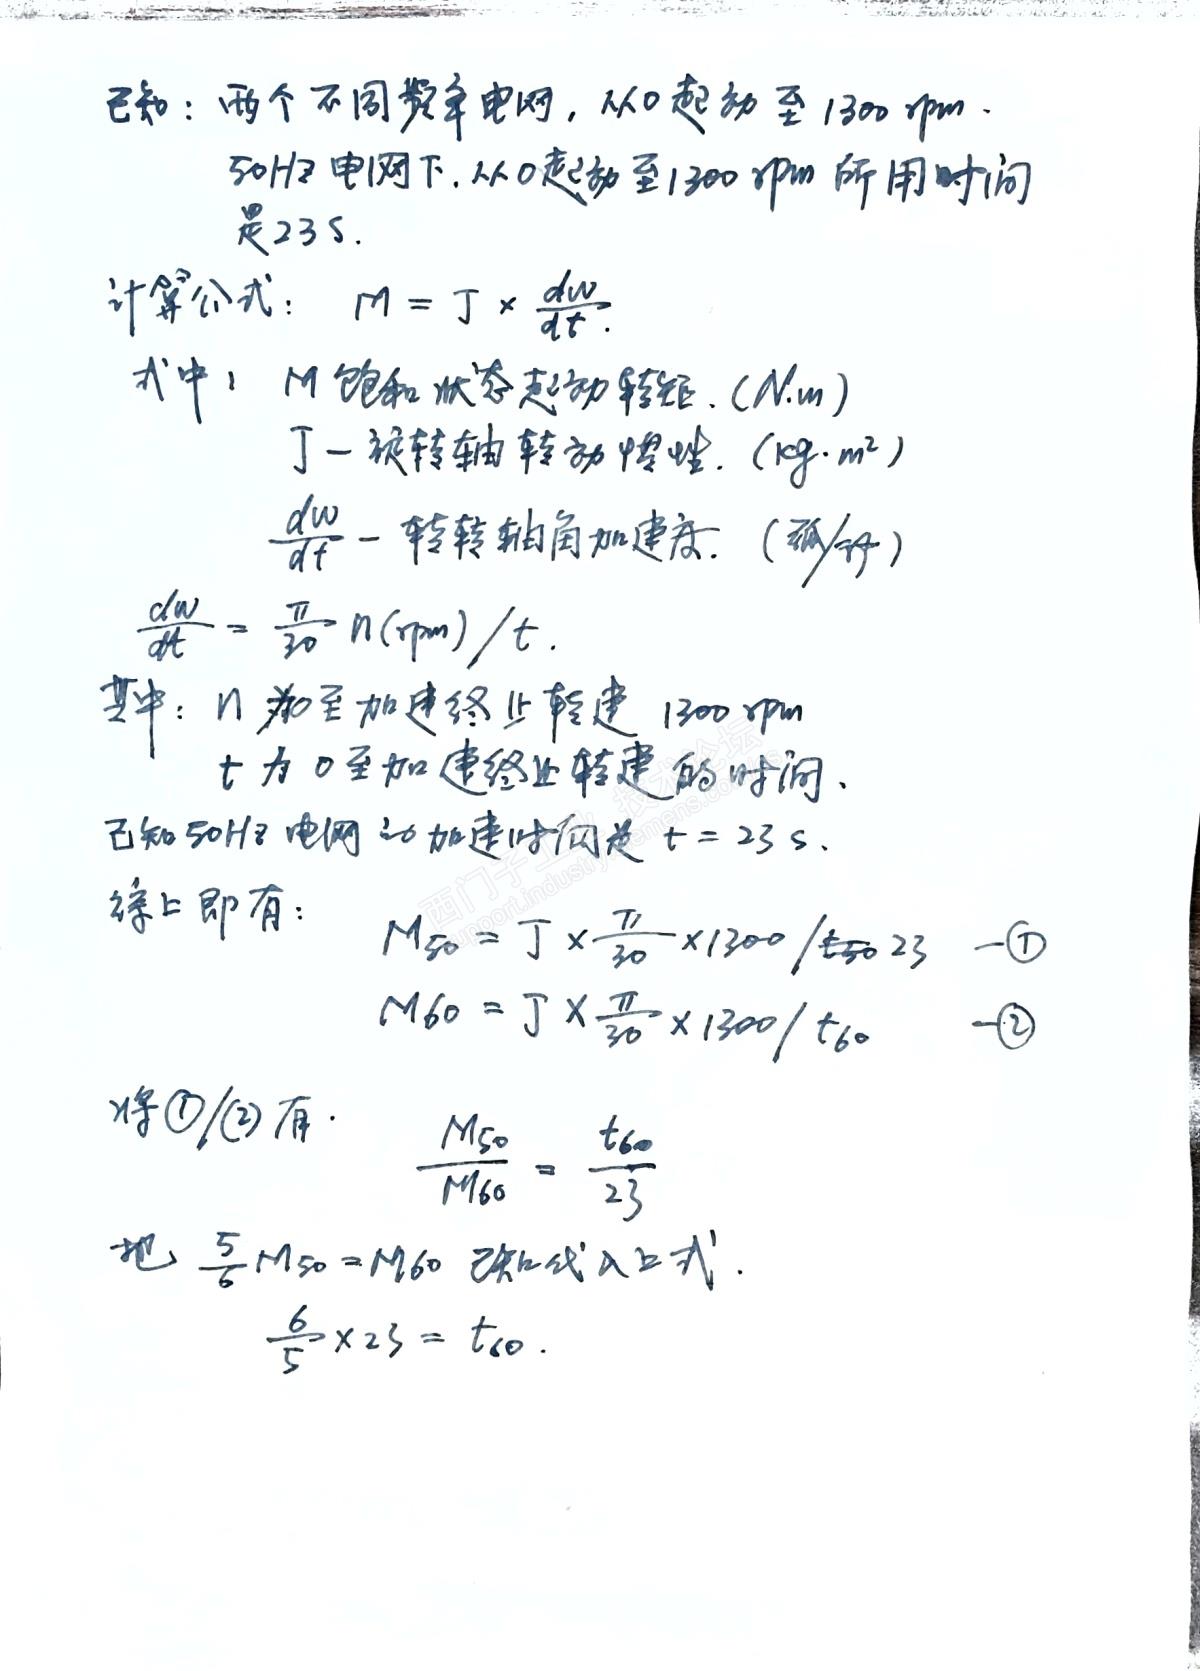 已知：两个不同频率电网，从0起动至1300 rpm.
50HZ电网下.从0起动至1300 rpm所用时间
是23S.
计算公式： M = J × dw/dt.
式中： M 饱和状态起动转矩.(N.m)
J — 旋转轴转动惯性.(kg·m²)
dw/dt — 转转轴角加速度.(弧/秒)
dw/dt = π/30 n(rpm)/t.
其中：n 为0至加速终止转速 1300 rpm
t 为 0至加速终止转速的时间.
已知50HZ电网的加速时间是 t = 23 s.
西门子工业技术论坛
support.industry.siemens.com/cs
综上即有：
M50 = J × π/30 × 1300/t50 23 —①
M60 = J × π/30 × 1300/t60 —②
将①/②有.
M50/M60 = t60/23
把 5/6 M50 = M60 已知代入上式.
6/5 × 23 = t60.